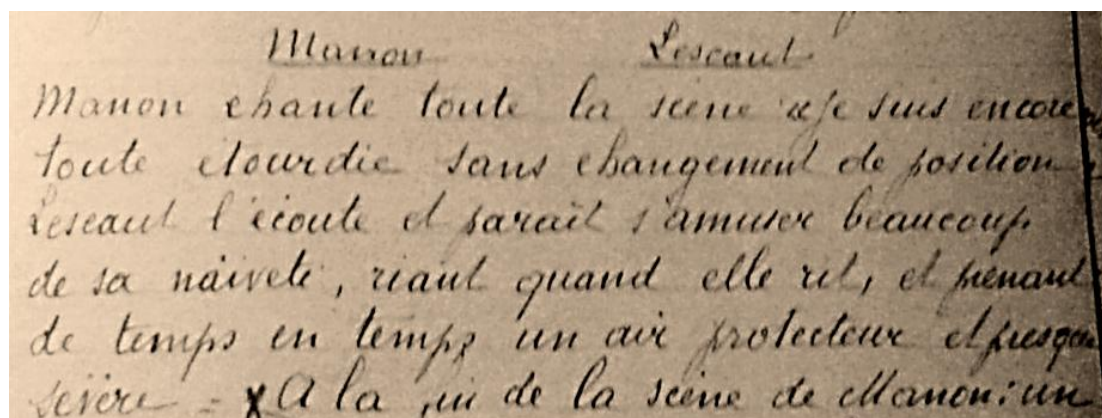 Manon Lescaut
Manon chante toute la scène « Je suis encore
toute étourdie sans changement de position
Lescaut l'écoute et paraît s'amuser beaucoup
de sa naïveté, riant quand elle rit, et prenant
de temps en temps un air protecteur et presque
sévère = X A la de la scène de Manon : un